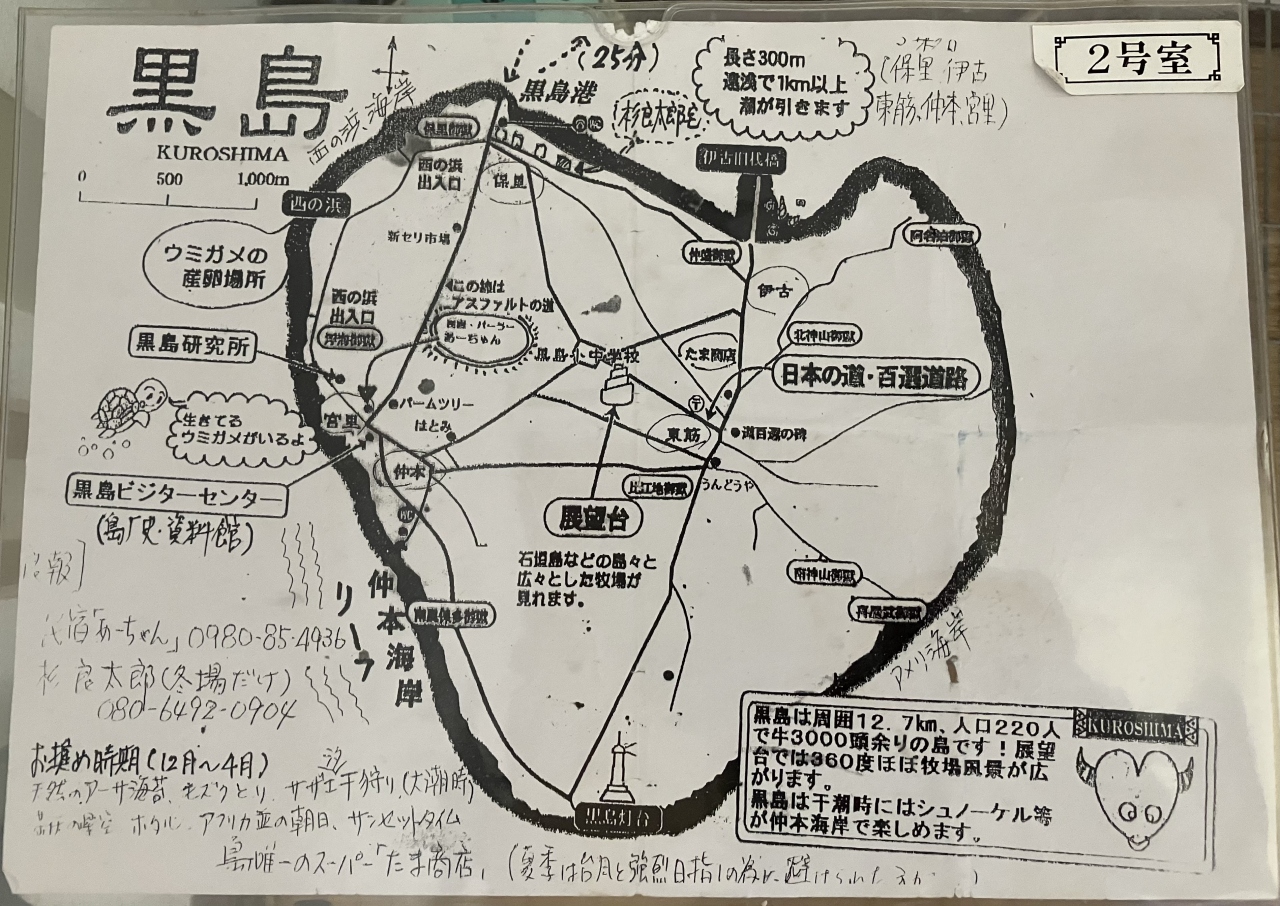 2号室
黒島
KUROSHIMA
0 500 1,000m
西の浜、海岸
(25分)
黒島港
(杉良太郎宅)
長さ300m
遠浅で1km以上
潮が引きます
(保里 伊古
東筋、仲本、宮里)
伊古旧桟橋
保里御嶽
西の浜
出入口
保里
西の浜
新セリ市場
仲盛御嶽
伊古
ウミガメの
産卵場所
この線は
アスファルトの道
西の浜
出入口
民宿・パーラー
あーちゃん
北神山御嶽
黒島研究所
黒島小中学校
たま商店
日本の道・百選道路
生きてる
ウミガメがいるよ
宮里
パームツリー
はとみ
東筋
道百選の碑
仲本
黒島ビジターセンター
(島)史・資料館)
比江地御嶽
うんどうや
展望台
石垣島などの島々と
広々とした牧場が
見れます。
南神山御嶽
仲本海岸
リーフ
アメリカ海岸
民宿「あーちゃん」0980-85-4936
杉良太郎(冬場だけ)
080-6492-0904
お奨め時期(12月〜4月)
天然のアーサ海苔、モズクとり、サザエ干狩り(大潮時)
ホタル、アフリカ並の朝日、サンセットタイム
島唯一のスーパー「たま商店」
(夏季は台風と強烈日指しの為に避けられた
黒島灯台
KUROSHIMA
黒島は周囲12.7km、人口220人
で牛3000頭余りの島です!展望
台では360度ほぼ牧場風景が広
がります。
黒島は干潮時にはシュノーケル等
が仲本海岸で楽しめます。